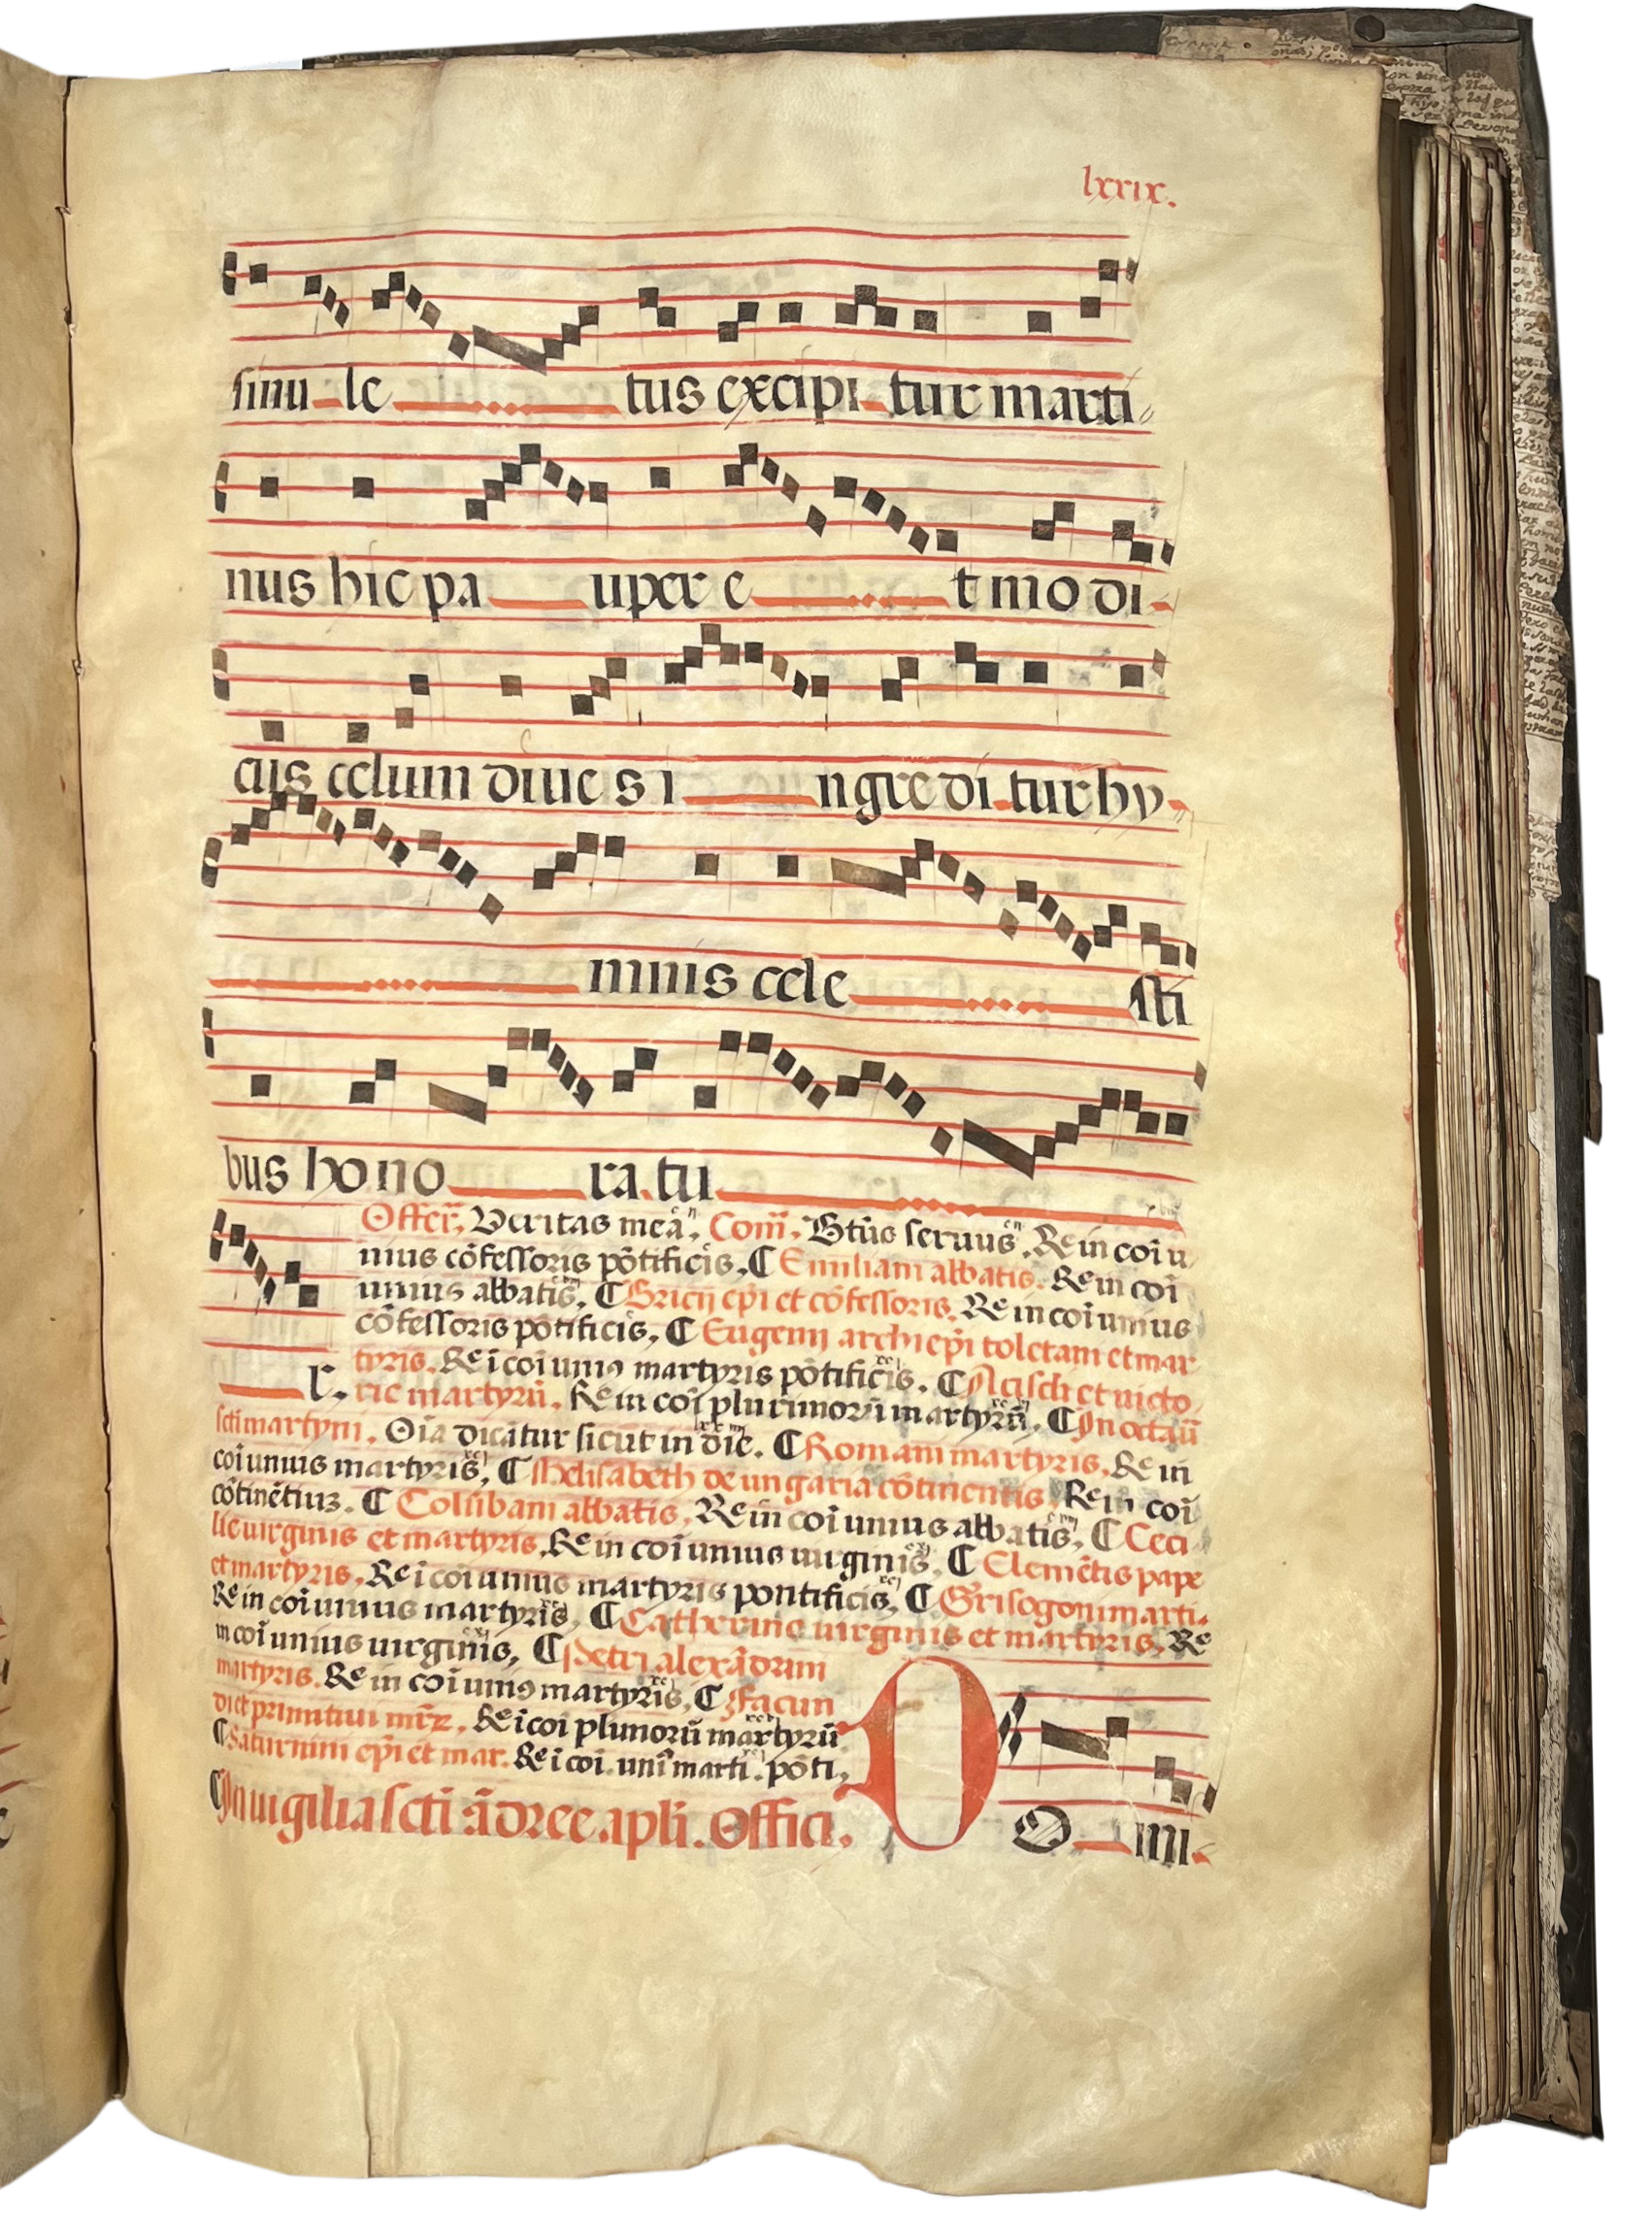 lxxix.
sinu le tus excipi tur marti
nus hic pa uper e t mo di
cus celum dives i ngre di tur hy
mnis cele sti
bus ho no ra tu
Offer̄. Veritas mea. Com̄. Btūs servus. Re in coī u
nius cōfessoris pōtificis. ¶ Emiliani abbatis. Re in coī
unius abbatis. ¶ Bricij epī et cōfessoris. Re in coī unius
cōfessoris pōtificis. ¶ Eugenij archiepī toletani et mar
tyris. Re ī coī uniꝯ martyris pōtificis. ¶ Aciscli et victo
r. rie martyrū. Re in coī plurimorū martyrū. ¶ In octav̄
scti martyni. Oīa dicātur sicut in die. ¶ Romani martyris. Re in
coī unius martyris. ¶ Helisabeth de ungaria cōtinentis. Re in coī
cōtinētiuz. ¶ Colūbani abbatis. Re in coī unius abbatis. ¶ Ceci
lie virginis et martyris. Re in coī unius virginis. ¶ Clemētis pape
et martyris. Re ī coī unius martyris pontificis. ¶ Grisogoni marti.
Re in coī unius martyris. ¶ Catherine virginis et martyris. Re
in coī unius virginis. ¶ Petri alexādrini
martyris. Re in coī uniꝯ martyris. ¶ Facun
di et primitivi mr̄z. Re ī coī plimorū martyrū
¶ Saturnini epī et mar. Re ī coī. unī marti. pōti.
¶ In vigilia scti ādree apli. Offici.
D O mi